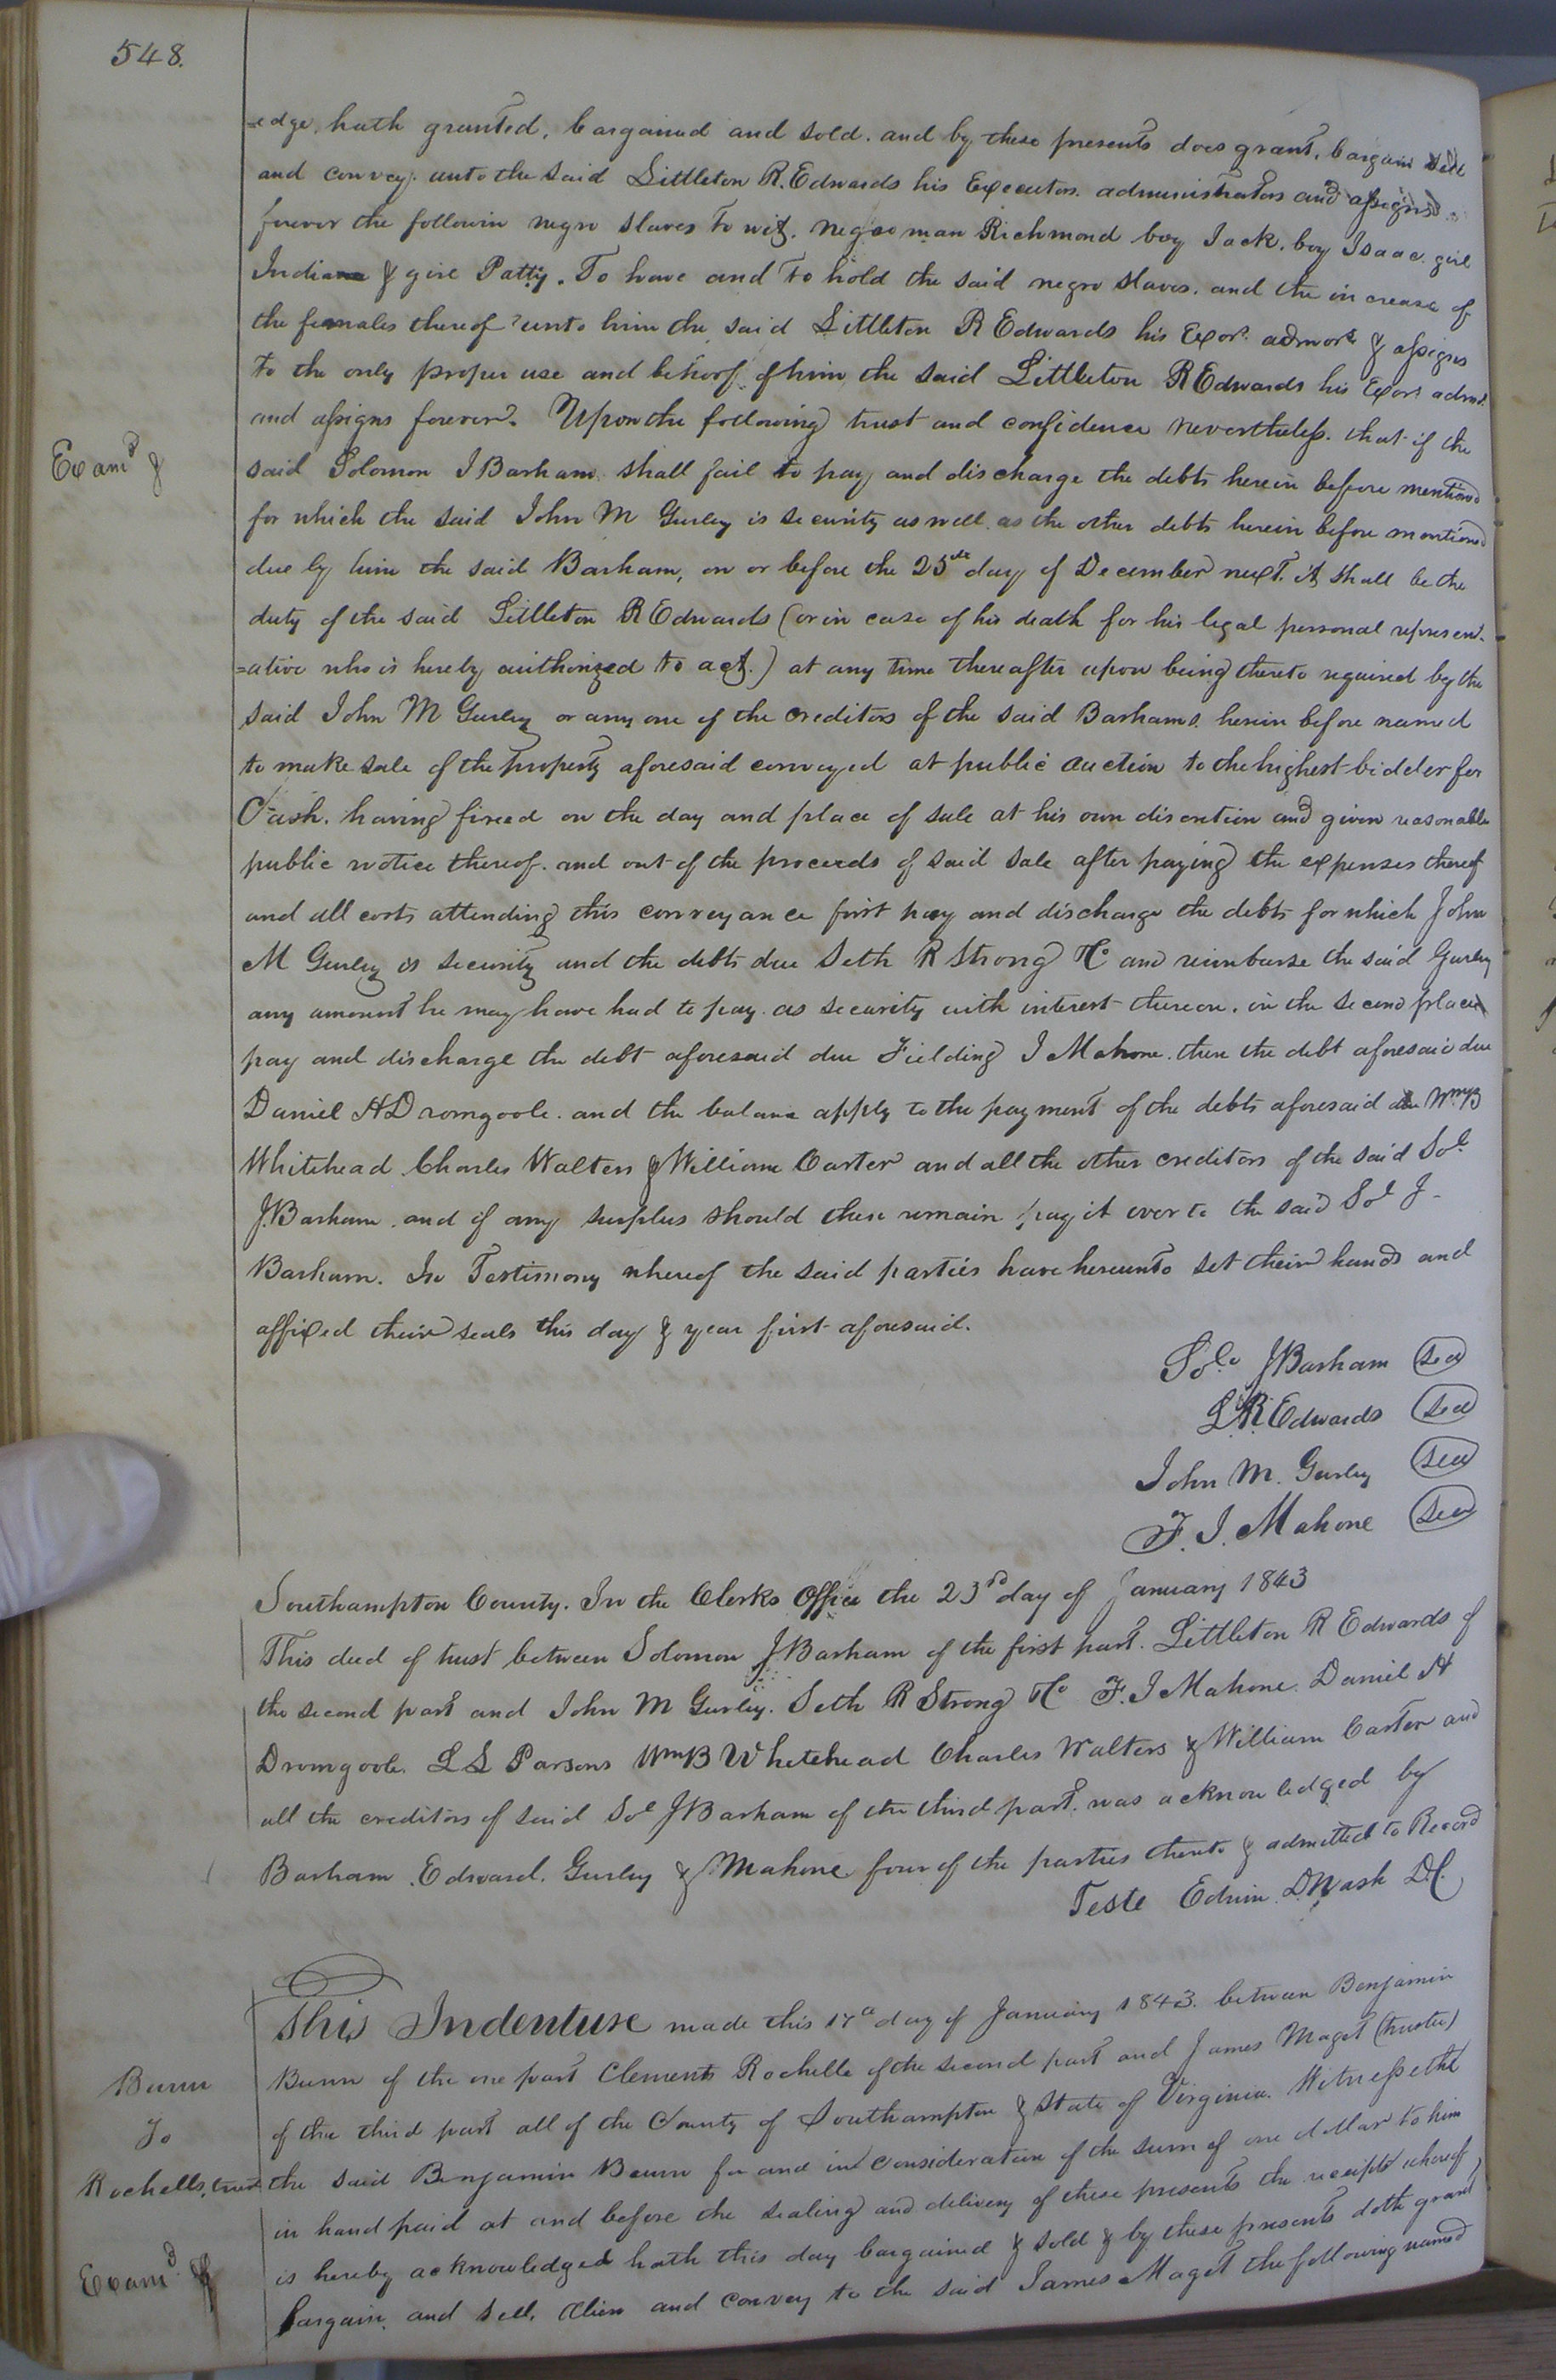 548.
=edge, hath granted, bargained and sold. and by these presents does grant, bargain sell
and convey. unto the said Littleton R. Edwards his Executors. administrators and assigns
forever the followin negro slaves to wit. negro man Richmond boy Jack. boy Isaac. girl
Indiana & girl Patty. To have and to hold the said negro slaves. and the increase of
the females thereof unto him the said Littleton R Edwards his Exors. admors & assigns
to the only proper use and behoof of him the said Littleton R Edwards his Exors admrs.
and assigns forever. Upon the following trust and confidence nevertheless. that if the
Examd &
said Solomon J Barham shall fail to pay and discharge the debts herein before mentiond
for which the said John M Gurley is security as well as the other debts herein before mentiond
due by him the said Barham, on or before the 25th day of December next. it shall be the
duty of the said Littleton R Edwards (or in case of his death for his legal personal represent-
=ative who is hereby authorized to act.) at any time thereafter upon being thereto required by the
said John M Gurley or any one of the creditors of the said Barhams. herein before named
to make sale of the property aforesaid conveyed at public auction to the highest bidder for
Cash. having fixed on the day and place of sale at his own discretion and given reasonable
public notice thereof. and out of the proceeds of said sale after paying the expenses thereof
and all costs attending this conveyance first pay and discharge the debts for which John
M Gurley is security and the debts due Seth R Strong &Co and reimburse the said Gurley
any amount he may have had to pay as security with interest thereon. in the second place
pay and discharge the debt aforesaid due Fielding J Mahone. then the debt aforesaid due
Daniel H Dromgoole. and the balance apply to the payment of the debts aforesaid due Wm B
Whitehead Charles Walters & William Carter and all the other creditors of the said Sol
J. Barham. and if any surplus should there remain pay it over to the said Sol J-
Barham. In Testimony whereof the said parties have hereunto set their hands and
affixed their seals this day & year first aforesaid.
Solo J Barham (Seal)
L R Edwards (Seal)
John M. Gurley (Seal)
F. J. Mahone (Seal)
Southampton County. In the Clerks Office the 23rd day of January 1843
This deed of trust between Solomon J Barham of the first part. Littleton R Edwards of
the second part and John M Gurley. Seth R Strong &Co F. J Mahone. Daniel H
Dromgoole. L L Parsons Wm B Whitehead Charles Walters & William Carter and
all the creditors of said Sol J Barham of the third part. was acknowledged by
Barham. Edward. Gurley & Mahone four of the parties thereto & admitted to Record
Teste Edwin D. Nash D.C.
This Indenture made this 17th day of January 1843. between Benjamin
Bunn
Bunn of the one part Clements Rochelle of the second part and James Maget (trustee)
To
of the third part all of the County of Southampton & State of Virginia. Witnesseth
Rochells, trust
the said Benjamin Bunn for and in consideration of the sum of one dollar to him
in hand paid at and before the sealing and delivery of these presents the receipt whereof
Examd. &
is hereby acknowledged hath this day bargained & sold & by these presents doth grant
bargain, and sell, alien and convey to the said James Maget the following named